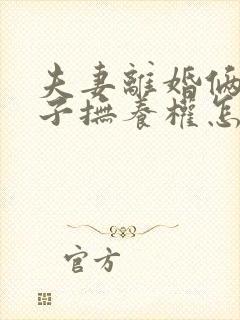 夫妻離婚倆
子撫養權怎
官方